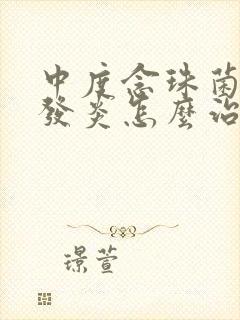 中度念珠菌
發炎怎麼治
璟萱